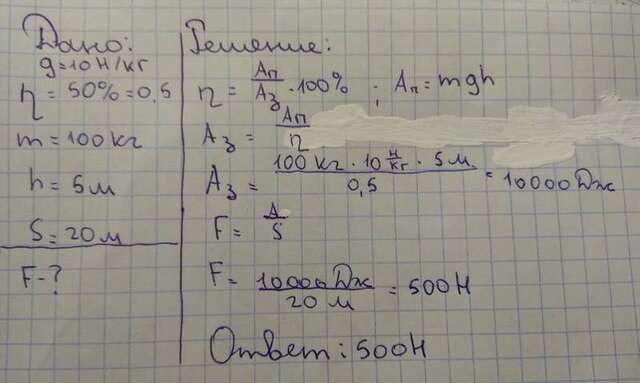 Дано:
g=10Н/кг
η = 50% = 0,5
m = 100кг
h = 5м
S = 20м
F-?
Решение:
η = Aп/Aз · 100% ; Aп = mgh
Aз = Aп/η
Aз = 100 кг · 10 Н/кг · 5 м / 0,5 = 10000 Дж
F = A/S
F = 10000 Дж / 20 м = 500Н
Ответ: 500Н